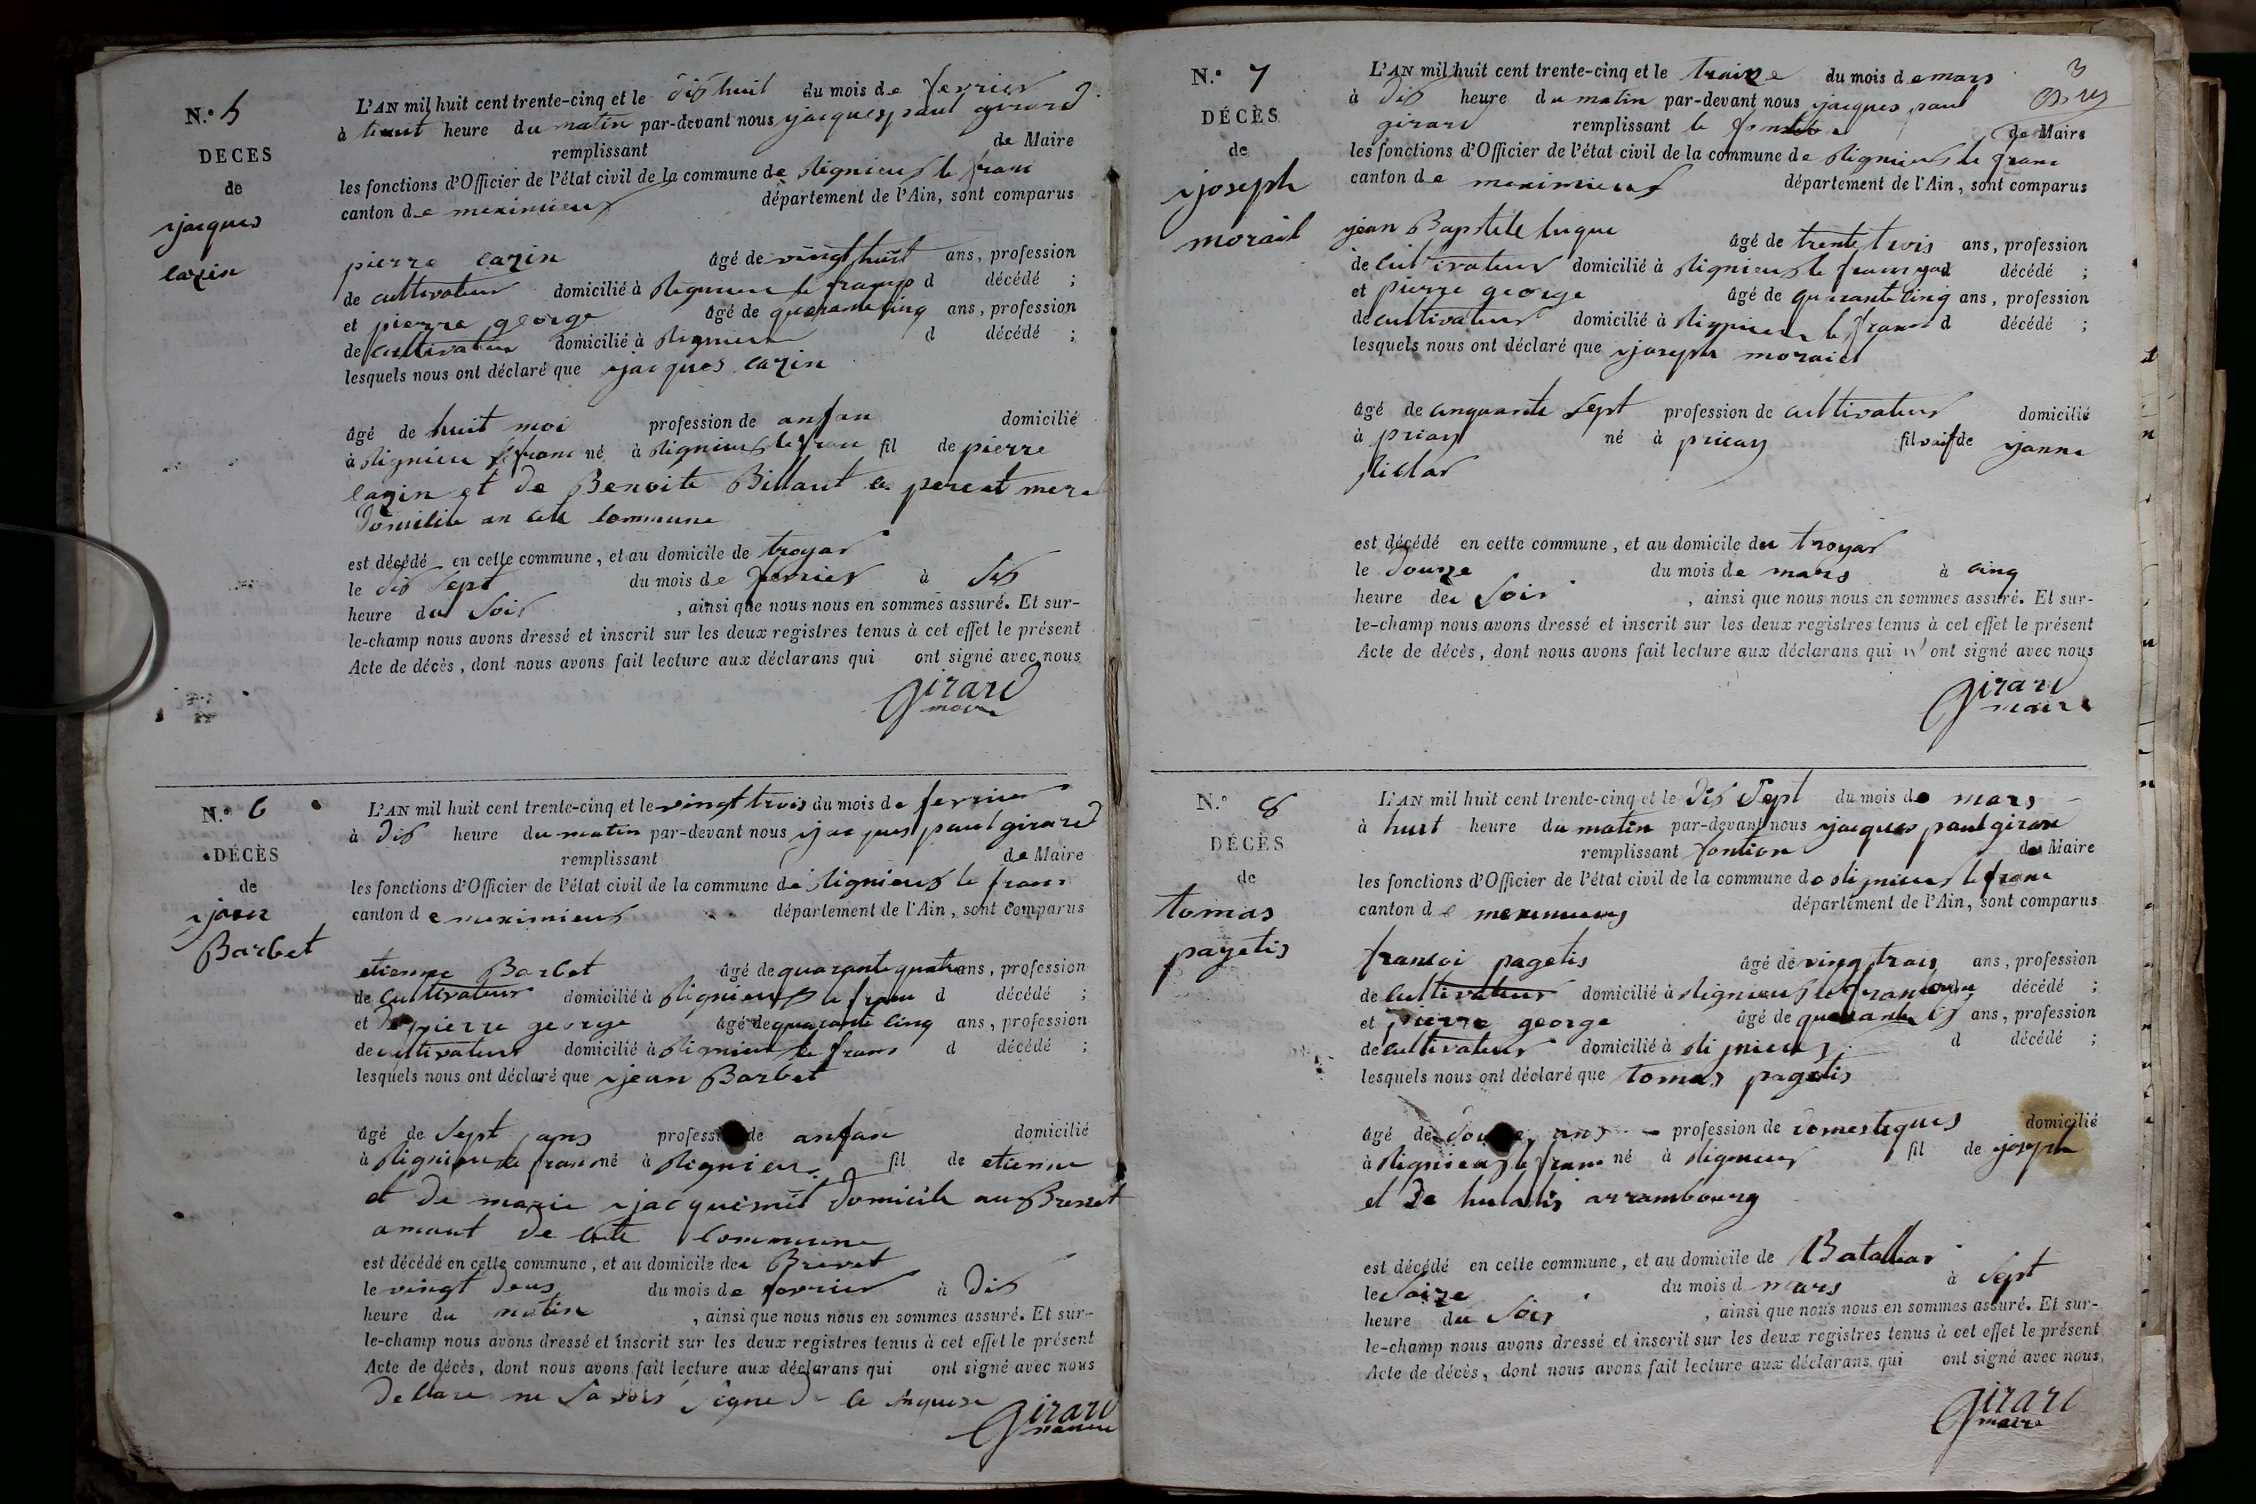 N.° 5
DECES
de
ijacques
cazin
L'AN mil huit cent trente-cinq et le dix huit du mois de fevrier
à heure du matin par-devant nous ijacques paul girard
remplissant de Maire
les fonctions d'Officier de l'état civil de la commune de rignieux le franc
canton de meximieux département de l'Ain, sont comparus
pierre cazin âgé de vingt huit ans, profession
de cultivateur domicilié à rignieux le franc d décédé ;
et pierre george âgé de quarante cinq ans, profession
de cultivateur domicilié à rignieux d décédé ;
lesquels nous ont déclaré que ijacques cazin
âgé de huit moi profession de anfan domicilié
à rignieu le franc né à rignieux le franc fil de pierre
cazin et de Benoite Billaut pere et mere
domicilie an cete commune
est décédé en cette commune, et au domicile de troyar
le dix sept du mois de fevrier à dix
heure du soir , ainsi que nous nous en sommes assuré. Et sur-
le-champ nous avons dressé et inscrit sur les deux registres tenus à cet effet le présent
Acte de décès, dont nous avons fait lecture aux déclarans qui ont signé avec nous
Girard
maire
N.° 6
DÉCÈS
de
ijean
Barbet
L'AN mil huit cent trente-cinq et le vingt trois du mois de fevrier
à dix heure du matin par-devant nous ijacques paul girard
remplissant de Maire
les fonctions d'Officier de l'état civil de la commune de rignieux le franc
canton de meximieux département de l'Ain, sont comparus
etienne Barbet âgé de quarante quatre ans, profession
de cultivateur domicilié à rignieux le franc d décédé ;
et de pierre george âgé de quarante cinq ans, profession
de cultivateur domicilié à rignieux le franc d décédé ;
lesquels nous ont déclaré que ijean Barbet
âgé de sept ans profession de anfan domicilié
à rignieux le franc né à rignieu fil de etienne
et de marie ijacquemet domicile au Brevet
amaut de cete commune
est décédé en cette commune, et au domicile de Brevet
le vingt deux du mois de fevrier à dix
heure du matin , ainsi que nous nous en sommes assuré. Et sur-
le-champ nous avons dressé et inscrit sur les deux registres tenus à cet effet le présent
Acte de décès, dont nous avons fait lecture aux déclarans qui ont signé avec nous
declare ne savoir signe de ce requere
Girard
maire
3
N.° 7
DÉCÈS
de
ijoseph
morail
L'AN mil huit cent trente-cinq et le traize du mois de mars
à dix heure du matin par-devant nous ijacques paul
girard remplissant le de Maire
les fonctions d'Officier de l'état civil de la commune de rignieux le franc
canton de meximieux département de l'Ain, sont comparus
ijean Baptiste luque âgé de trente trois ans, profession
de cultivateur domicilié à rignieux le franc d décédé ;
et pierre george âgé de quarante cinq ans, profession
de cultivateur domicilié à rignieux le franc d décédé ;
lesquels nous ont déclaré que ijoseph morail
âgé de cinquante sept profession de cultivateur domicilié
à priay né à priay fil de ijanne
est décédé en cette commune, et au domicile du troyar
le douze du mois de mars à cinq
heure de soir , ainsi que nous nous en sommes assuré. Et sur-
le-champ nous avons dressé et inscrit sur les deux registres tenus à cet effet le présent
Acte de décès, dont nous avons fait lecture aux déclarans qui n'ont signé avec nous
Girard
maire
N.° 8
DÉCÈS
de
tomas
pagetis
L'AN mil huit cent trente-cinq et le dix sept du mois de mars
à huit heure du matin par-devant nous ijacques paul girard
remplissant fontion de Maire
les fonctions d'Officier de l'état civil de la commune de rignieux le franc
canton de meximieux département de l'Ain, sont comparus
francoi pagetis âgé de ving trois ans, profession
de cultivateur domicilié à rignieux le franc d décédé ;
et pierre george âgé de quarante ans, profession
de cultivateur domicilié à rignieux d décédé ;
lesquels nous ont déclaré que tomas pagetis
âgé de douze ans profession de domestiques domicilié
à rignieux le franc né à rignieux fil de joseph
et de arrambourg
est décédé en cette commune, et au domicile de Batallar
le saize du mois d mars à sept
heure du soir , ainsi que nous nous en sommes assuré. Et sur-
le-champ nous avons dressé et inscrit sur les deux registres tenus à cet effet le présent
Acte de décès, dont nous avons fait lecture aux déclarans qui ont signé avec nous
Girard
maire